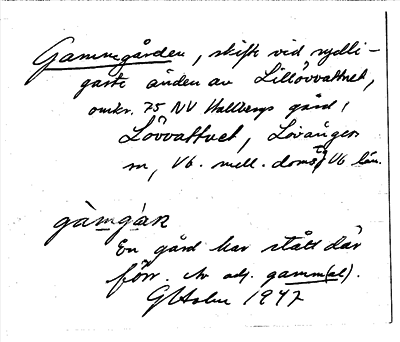 Gammegården, skifte vid sydli-
gaste änden av Lillövvattnet,
omkr. 75 NV Hallbergs gård,
Lövvattnet, Lövånger
sn, Vb. mell. doms, Vb län.
gàmgàṛṇ
En gård har stått där
förr. Av adj. gamm(al).
GHolm 1947